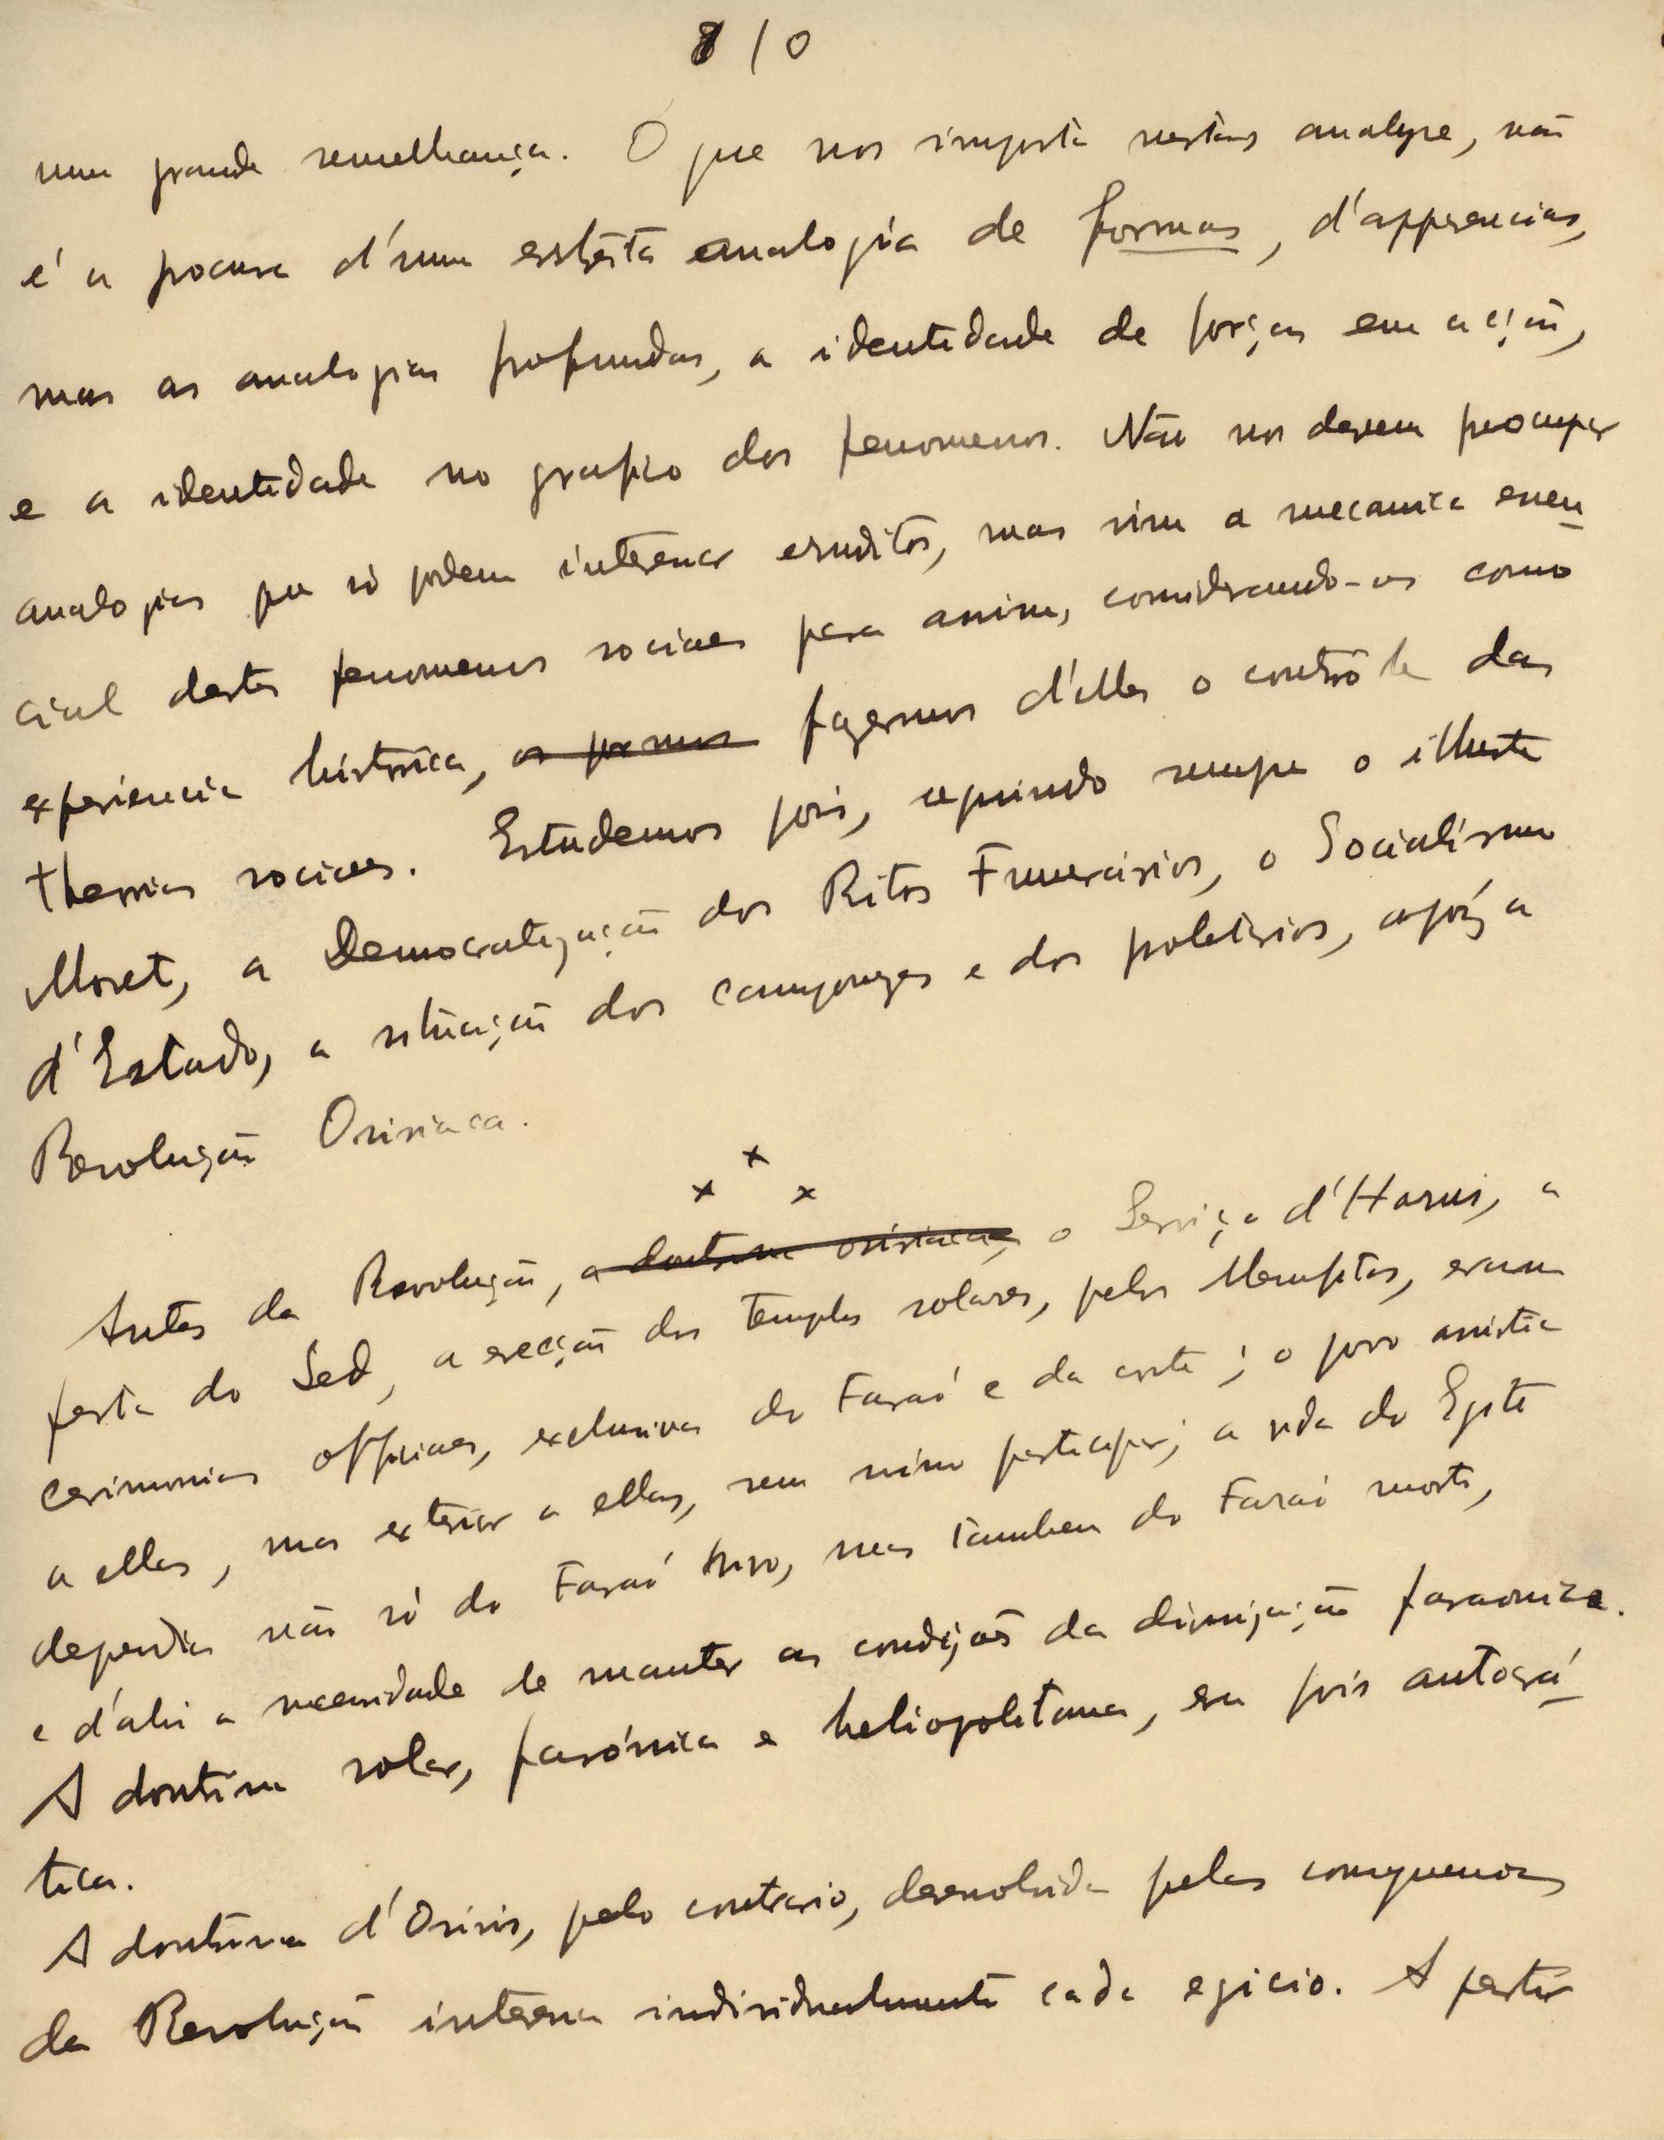 8 / 0
uma grande semelhança. O que nos importa nestas analyse, não
é a procura d'uma estreita analogia de formas, d'apparencias,
mas as analogias profundas, a identidade de forças em acção,
e a identidade no grafico dos fenomenos. Não nos devem preocupar
analogias que só podem interessar eruditos, mas sim a mecanica essen
cial destes fenomenos sociaes para assim, considerando-os como
experiencia historica, fazermos d'elles o contrôle das
theorias sociaes. Estudemos pois, seguindo sempre o illustre
Moret, a Democratização dos Ritos Funerários, o Socialismo
d'Estado, a situação dos camponezes e dos proletários, após a
Revolução Osiriaca.
x x x
Antes da Revolução, a doutrina osiriaca, o Serviço d'Horus, a
festa do Sed, a erecção dos templos solares, pelos Memfitas, eram
cerimonias officiaes, exclusivas do Faraó e da corte; o povo assistia
a ellas, mas exterior a ellas, sem nimo participar; a vida do Egito
dependia não só do Faraó vivo, mas tambem do Faraó morto,
e d'ahi a necessidade de manter as condições da divinização faraonica.
A doutrina solar, faraónica e heliopolitana, era pois autocrá
tica.
A doutrina d'Osiris, pelo contrario, desenvolvida pelas consequencias
da Revolução interessa individualmente cada egicio. A partir